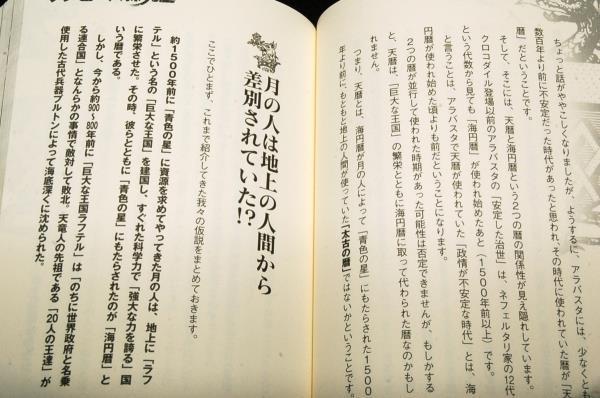 ちょっと話がややこしくなりましたが、ようするに、アラバスタには、少なくとも
数百年より前に不安定だった時代があったと思われ、その時代に使われていた暦が「天
暦」だということです。
そして、そこには、天暦と海円暦という2つの暦の関係性が見え隠れしています。
クロコダイル登場以前のアラバスタの「安定した治世」は、ネフェルタリ家の12代
という代数から見ても「海円暦」が使われ始めたあと(1500年前以上)です。
と言うことは、アラバスタで天暦が使われていた「政情が不安定な時代」とは、海
円暦が使われ始めた頃よりも前だということになります。
2つの暦が並行して使われた時期があった可能性は否定できませんが、もしかする
と、天暦は、「巨大な王国」の繁栄とともに海円暦に取って代わられた暦なのかもし
れません。
つまり、天暦とは、海円暦が月の人によって「青色の星」にもたらされた1500
年より前に、もともと地上の人間が使っていた「太古の暦」ではないかということです。
月の人は地上の人間から
差別されていた!?
ここでひとまず、これまで紹介してきた我々の仮説をまとめておきます。
約1500年前に「青色の星」に資源を求めてやってきた月の人は、地上に「ラフ
テル」という名の「巨大な王国」を建国し、すぐれた科学力で「強大な力を誇る」国
に繁栄させた。その時、彼らとともに「青色の星」にもたらされたのが「海円暦」と
いう暦である。
しかし、今から約900~800年前に「巨大な王国ラフテル」は「のちに世界政府と名乗
る連合国」となんらかの事情で敵対して敗北。天竜人の先祖である「20人の王達」が
使用した古代兵器プルトンによって海底深くに沈められた。